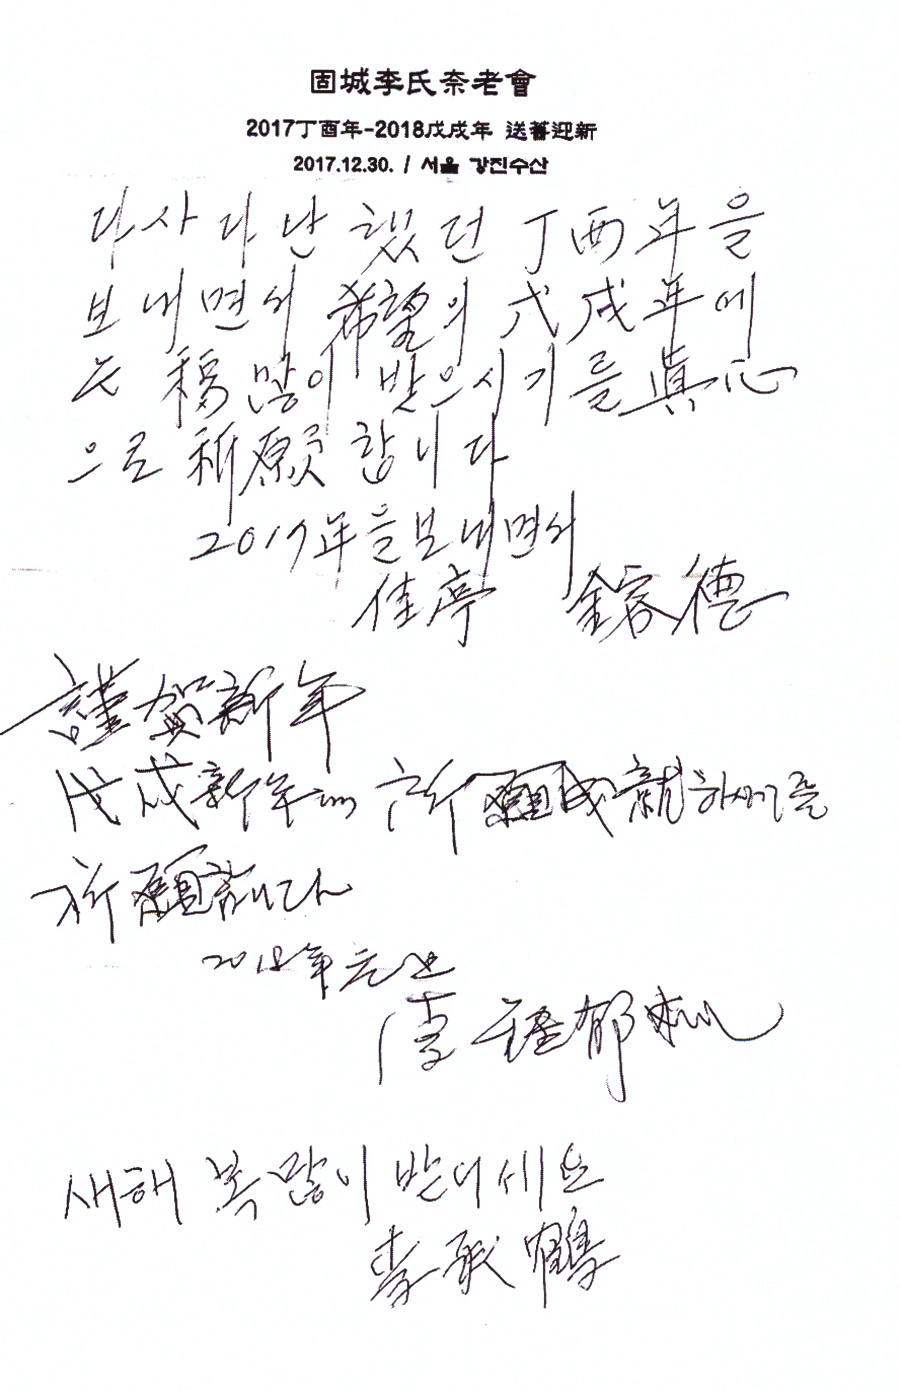 固城李氏奈老會
2017丁酉年-2018戊戌年 送舊迎新
2017.12.30. / 서울 강진수산
다사다난 했던 丁酉年을
보내면서 希望의 戊戌年에
는 福많이 받으시기를 眞心
으로 祈願합니다
2017年을보내면서
佳亭 鎔德
謹賀新年
戊戌新年에 所願成就하시기를
祈願합니다
2018年 元旦
李 郁
새해 복많이 받더세요
李承鶴